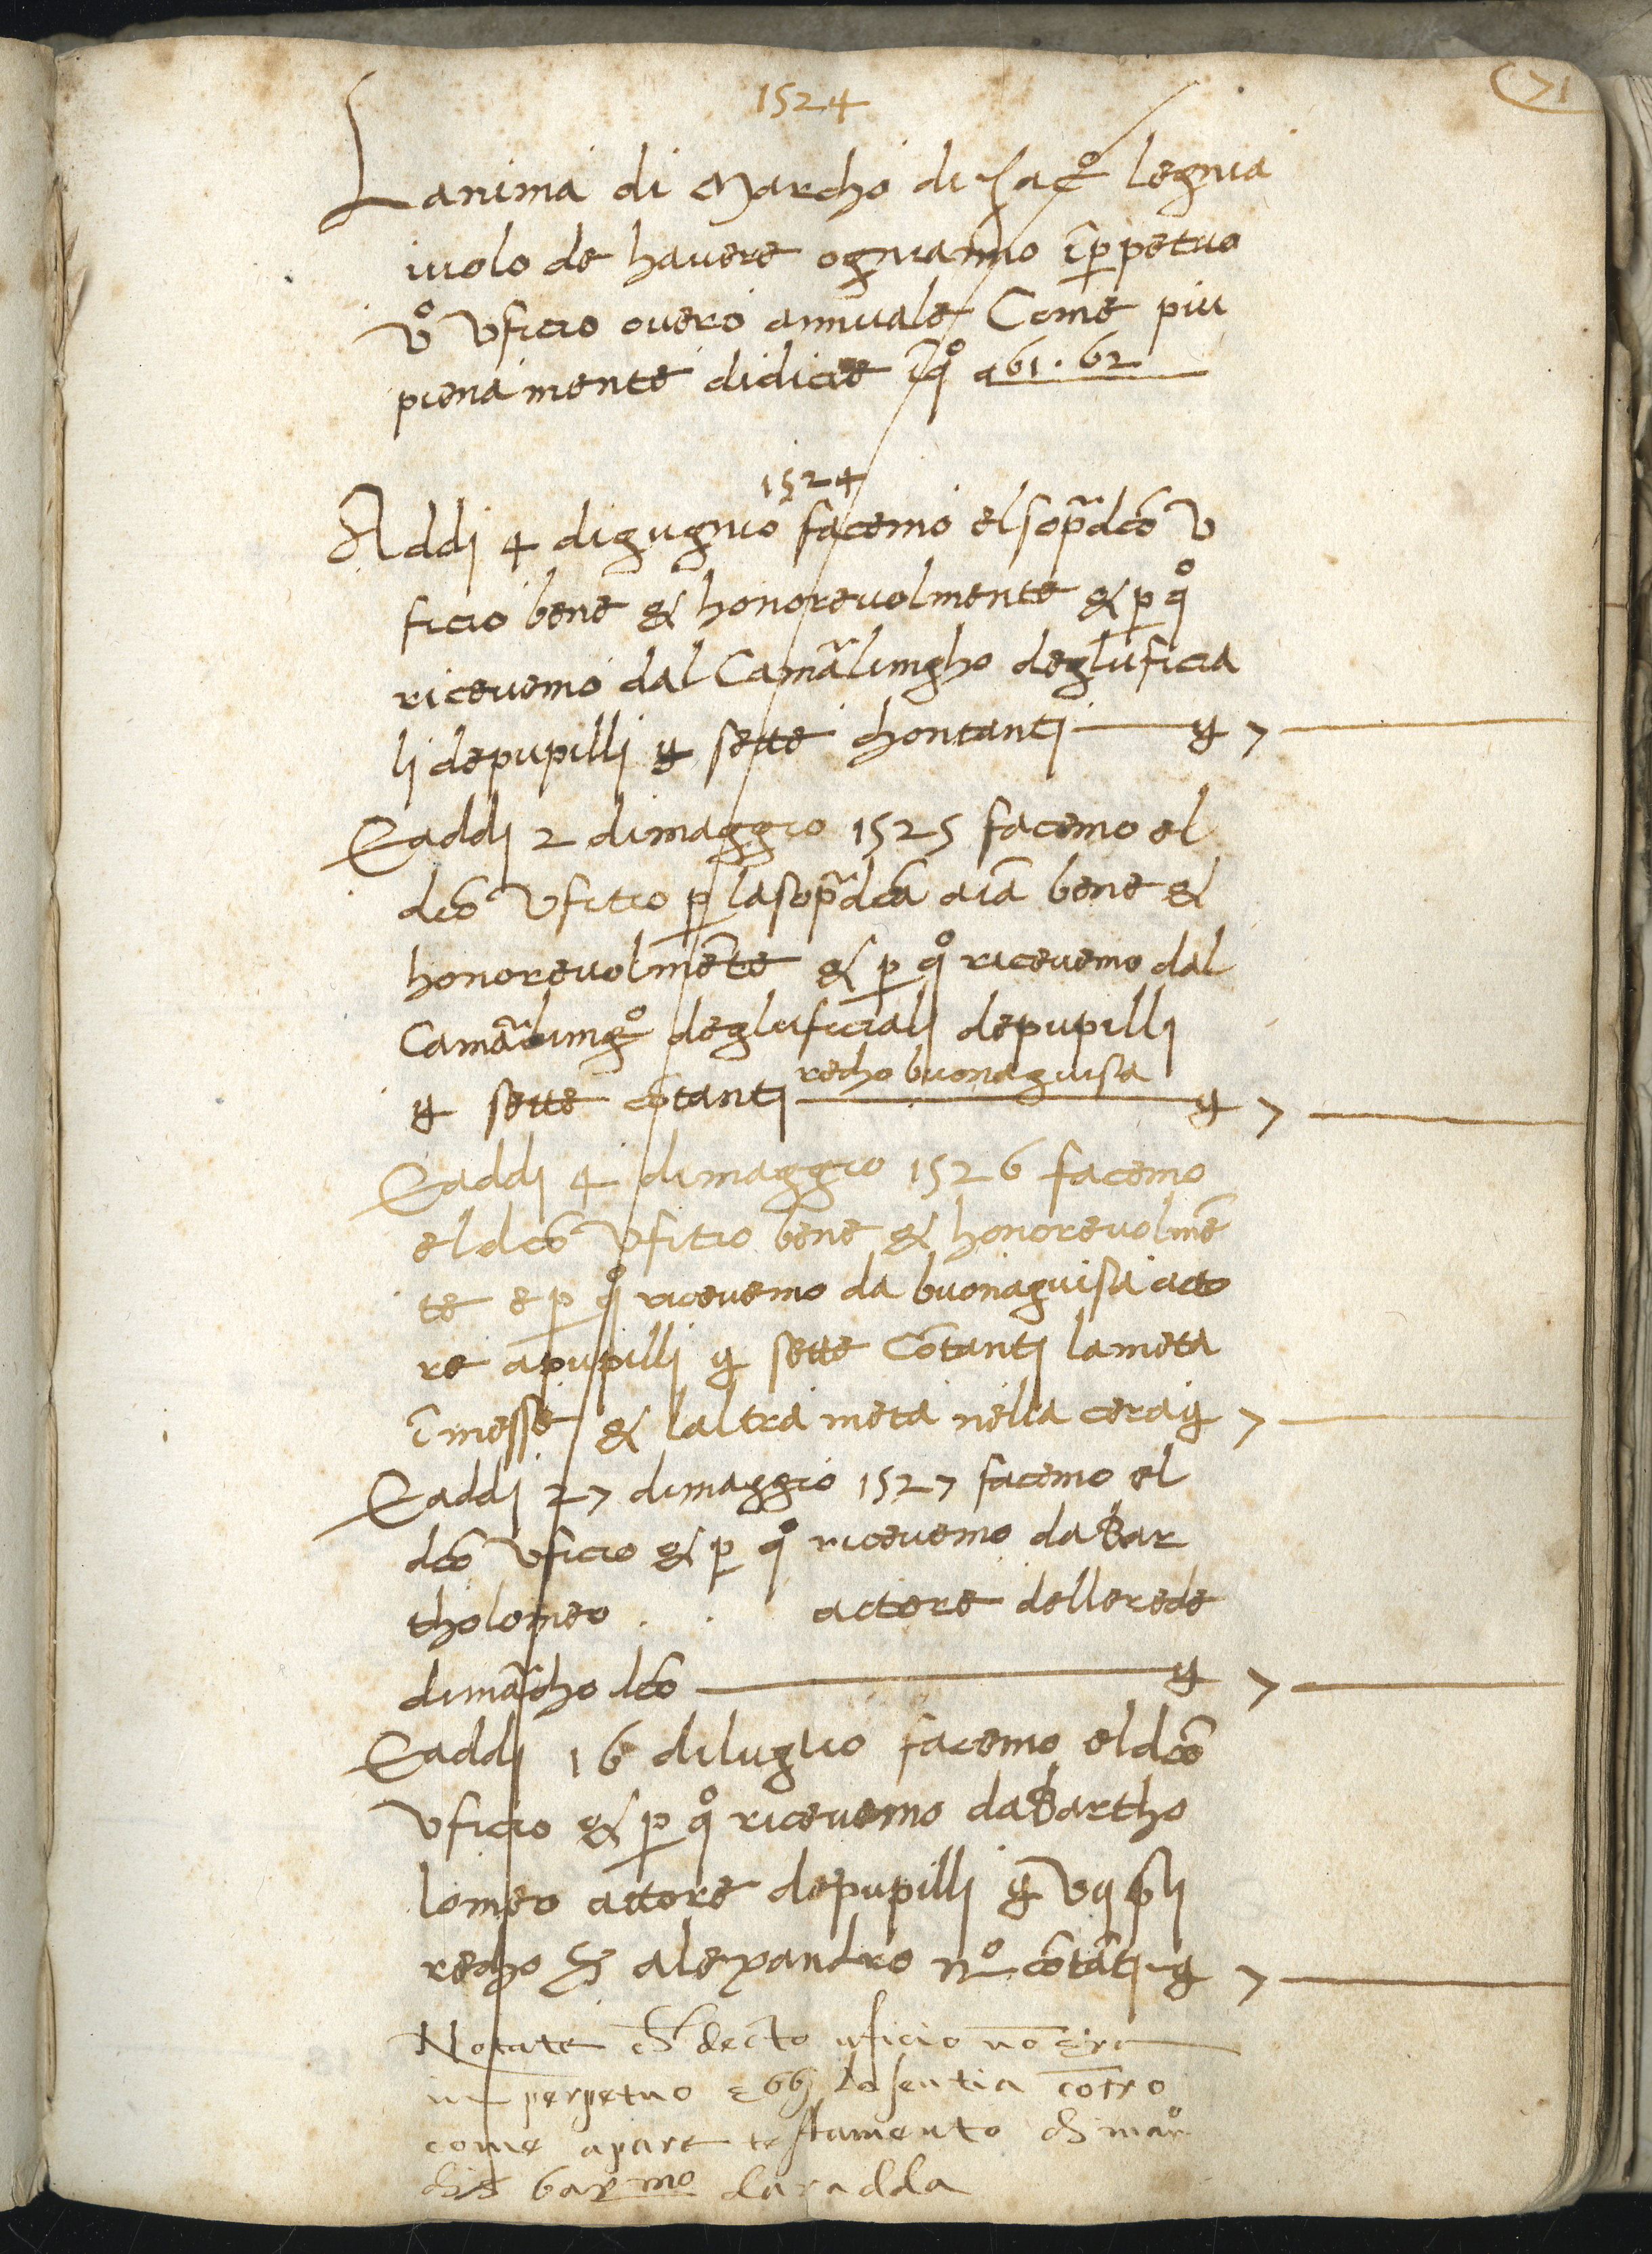 71
1524
Lanima di Marcho di Iac° legnia
iuolo de havere ognianno īperpetuo
v° vficio overo annuale Come piu
pienamente didicie ī q° a 61. 62
1524
Addi 4 digugnio facemo el sopradc̄o v
ficio bene & honorevolmente & p q°
ricevemo dal Camarlingho degluficia
li depupilli ƒ sette chontanti ƒ 7
E addi 2 dimaggio 1525 facemo el
dc̄o Vfitio p lasopradc̄a aīa bene &
honorevolmēte & p q° ricevemo dal
Camarling° degluficiali depupilli
recho buonaguisa
ƒ sette cōtanti ƒ 7
E addi 4 dimaggio 1526 facemo
el dc̄o Vfitio bene & honorevolmē
te e p q° ricevemo da buonaguisa acto
re apupilli ƒ sette Cōtanti la meta
ī messe & laltra meta nella cera ƒ 7
E addi 27 dimaggio 1527 facemo el
dc̄o Vficio & p q° ricevemo da Bar
tholomeo . . actore dellerede
dimārcho dc̄o ƒ 7
E addi 16 diluglio facemo el dc̄o
Vficio & p q° ricevemo da Bartho
lomeo attore depupilli ƒ vij
recho alexandro n° cōtāti ƒ 7
Notate decto uficio nō era
in perpetuo la sentia cōtro
come apare testamento di mar°
bar mo daradda